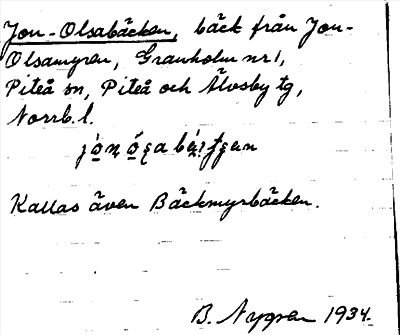 Jon-Olsabäcken, bäck från Jon-
Olsamyren, Granholm nr 1,
Piteå sn, Piteå och Älvsby tg,
Norrb. l.
Kallas även Bäckmyrbäcken.
B. Nygren 1934.